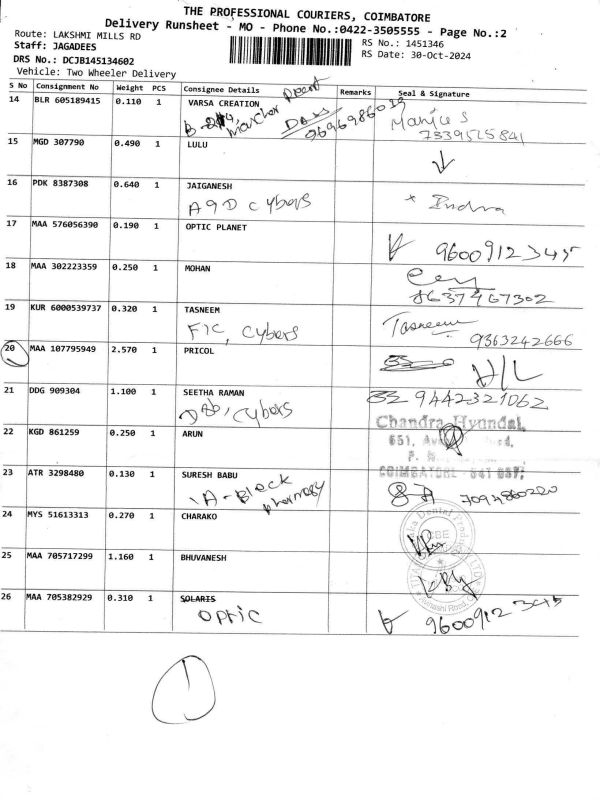 THE PROFESSIONAL COURIERS, COIMBATORE
Delivery Runsheet - MO - Phone No.:0422-3505555 - Page No.:2
Route: LAKSHMI MILLS RD
Staff: JAGADEES
DRS No.: DCJB145134602
Vehicle: Two Wheeler Delivery
RS No.: 1451346
RS Date: 30-Oct-2024
S No Consignment No Weight PCS Consignee Details Remarks Seal & Signature
14 BLR 605189415 0.110 1 VARSA CREATION
Manju S
7339525841
15 MGD 307790 0.490 1 LULU
16 PDK 8387308 0.640 1 JAIGANESH
A9D cybers Indra
17 MAA 576056390 0.190 1 OPTIC PLANET
9600912345
18 MAA 302223359 0.250 1 MOHAN
8637467302
19 KUR 6000539737 0.320 1 TASNEEM
F1C, cybers Tasneem
9363242666
20 MAA 107795949 2.570 1 PRICOL
H/L
21 DDG 909304 1.100 1 SEETHA RAMAN
cybers 9442321062
22 KGD 861259 0.250 1 ARUN
Chandra Hyundai,
651,
COIMBATORE - 641 037.
23 ATR 3298480 0.130 1 SURESH BABU
A-Block
pharmacy
7094860220
24 MYS 51613313 0.270 1 CHARAKO
25 MAA 705717299 1.160 1 BHUVANESH
26 MAA 705382929 0.310 1 SOLARIS
optic
9600912345